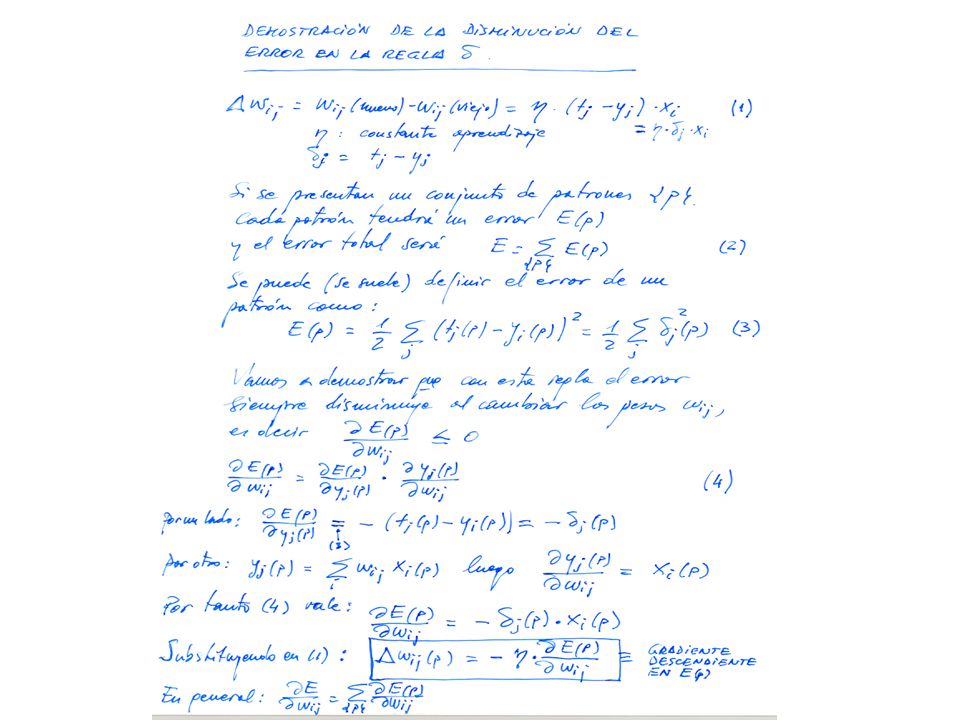 DEMOSTRACIÓN DE LA DISMINUCIÓN DEL
ERROR EN LA REGLA δ.
Δwij = wij (nuevo) - wij (viejo) = η · (tj - yj) · xi (1)
η : constante aprendizaje = η·δj·xi
δj = tj - yj
Si se presentan un conjunto de patrones {p}.
Cada patrón tendrá un error E(p)
y el error total será E = Σ{p} E(p) (2)
Se puede (se suele) definir el error de un
patrón como:
E(p) = 1/2 Σj (tj(p) - yj(p))² = 1/2 Σj δj²(p) (3)
Vamos a demostrar que con esta regla el error
siempre disminuye al cambiar los pesos wij,
es decir ∂E(p)/∂wij ≤ 0
∂E(p)/∂wij = ∂E(p)/∂yj(p) · ∂yj(p)/∂wij (4)
Por un lado: ∂E(p)/∂yj(p) = (3) - (tj(p) - yj(p)) = - δj(p)
por otro: yj(p) = Σi wij xi(p) luego ∂yj(p)/∂wij = xi(p)
Por tanto (4) vale: ∂E(p)/∂wij = - δj(p) · xi(p)
Substituyendo en (1) : Δwij(p) = - η · ∂E(p)/∂wij ≡ GRADIENTE
DESCENDIENTE
EN E(p)
En general: ∂E/∂wij = Σ{p} ∂E(p)/∂wij